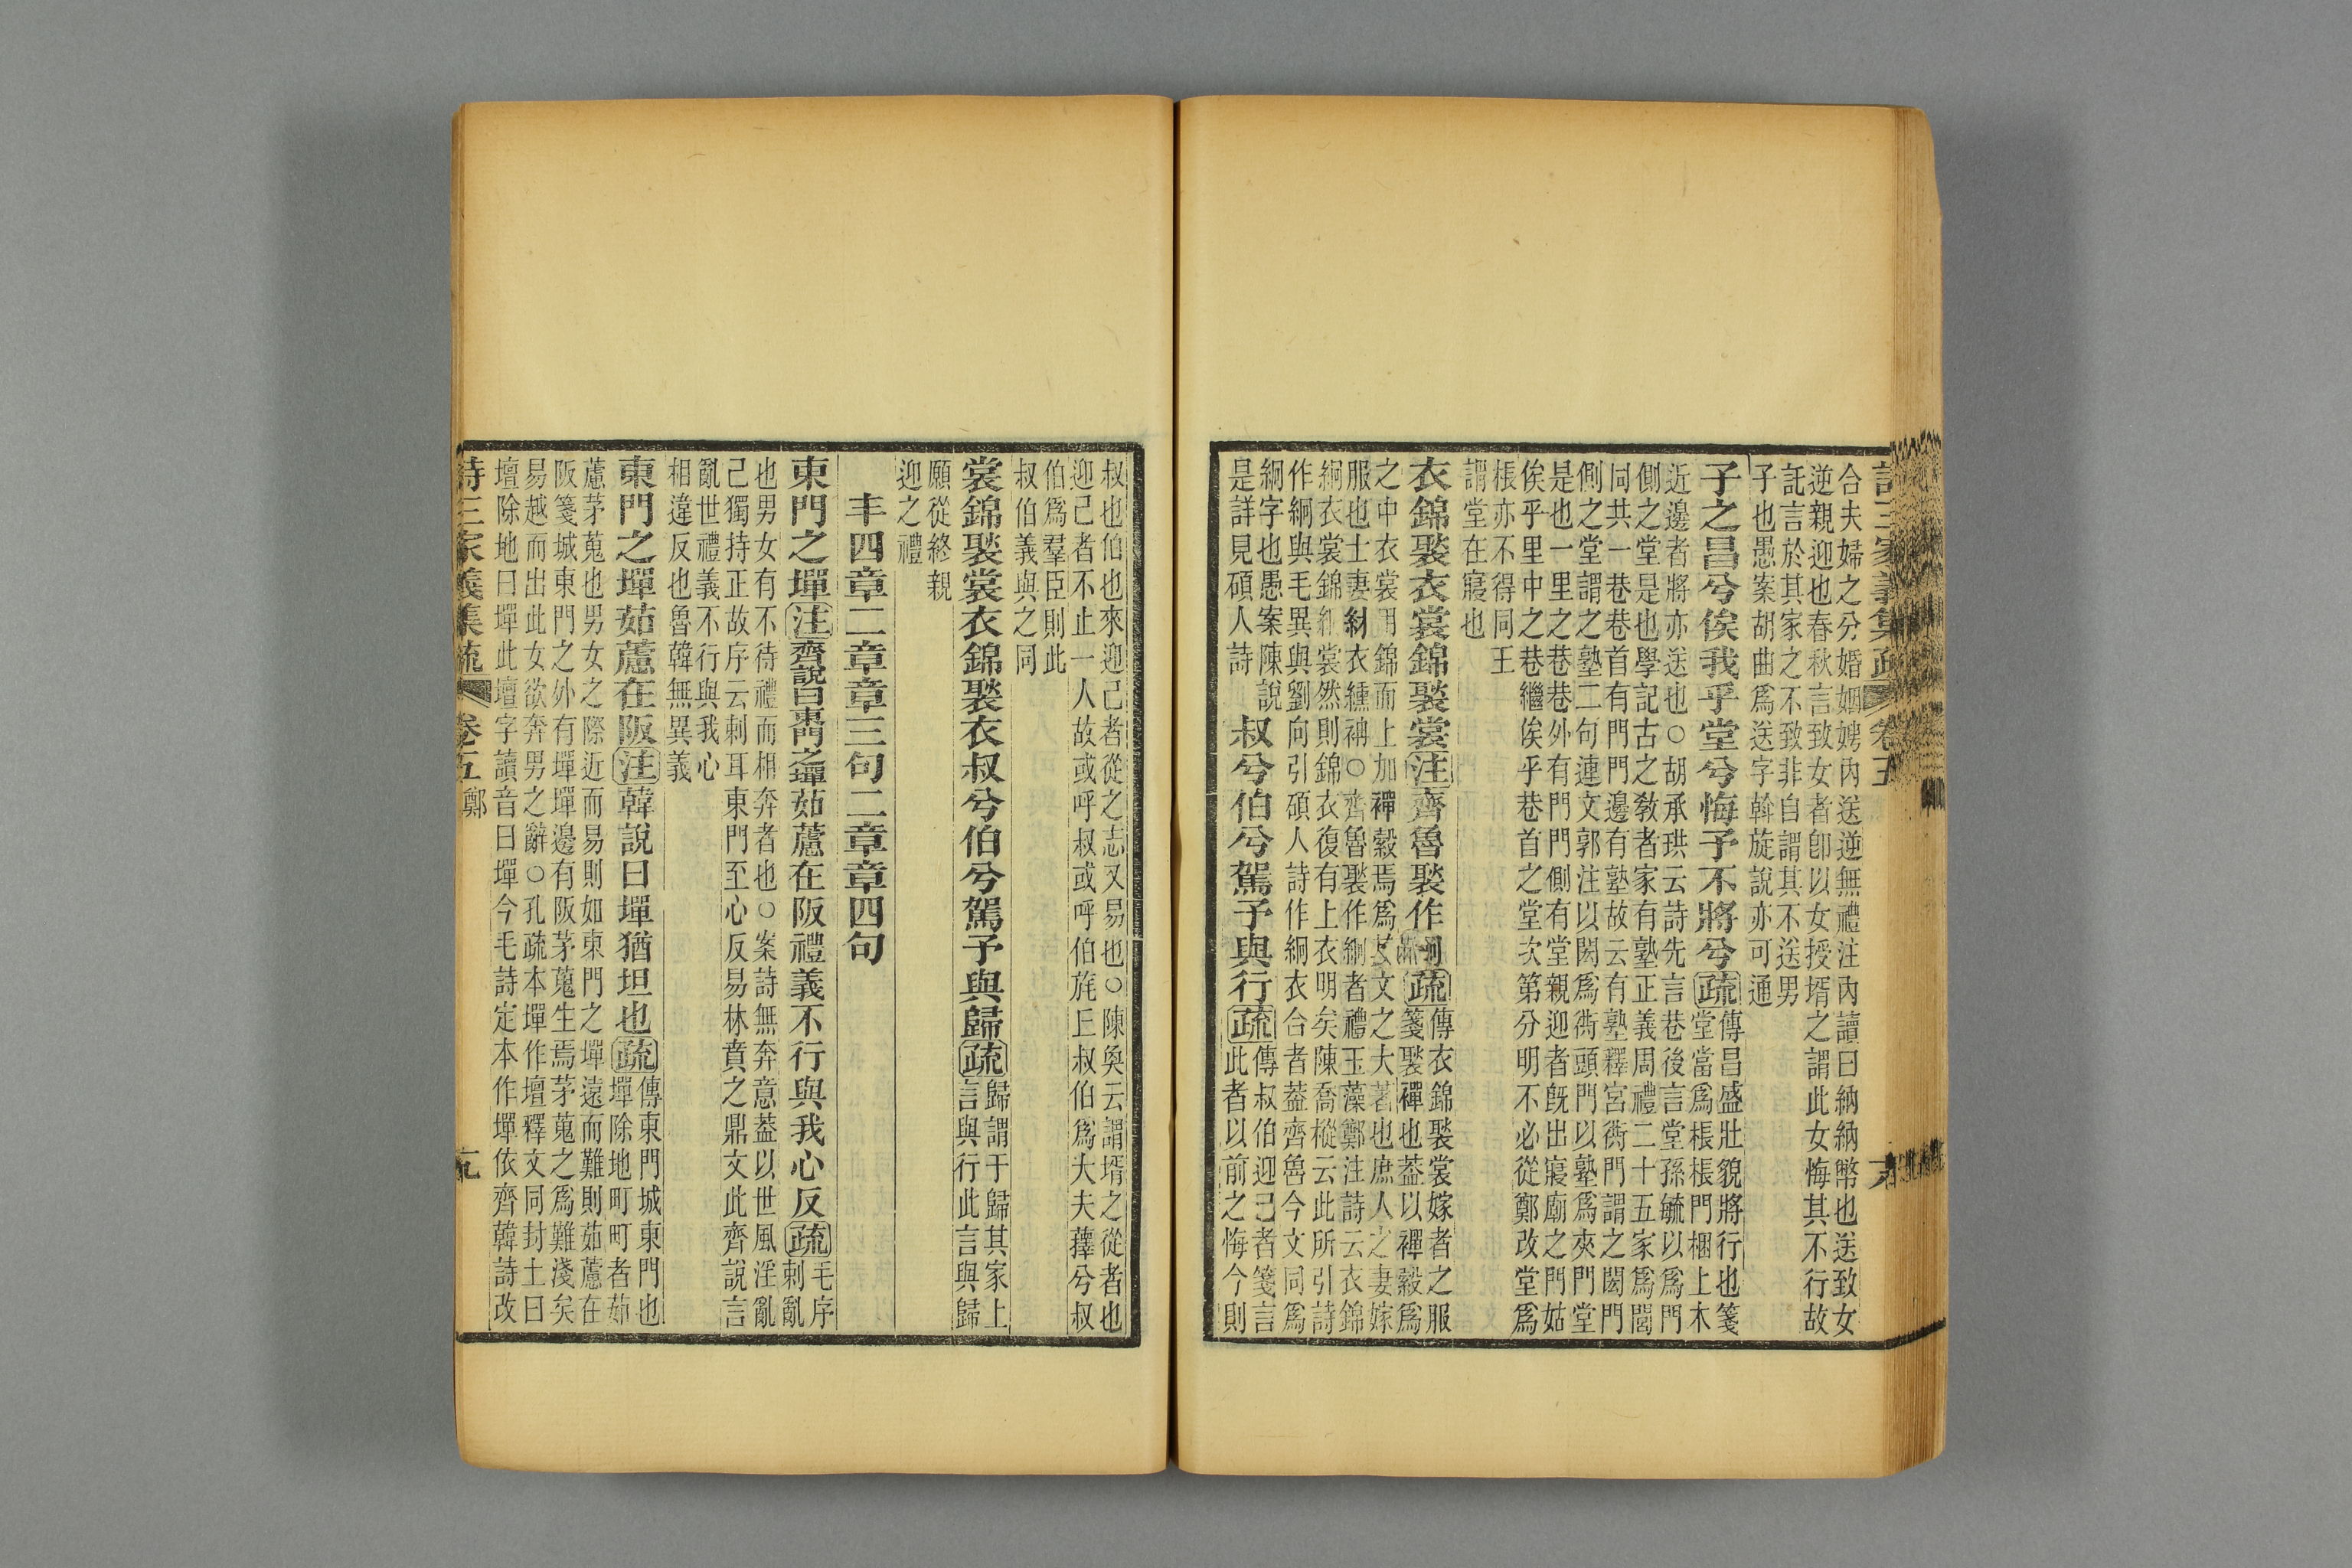 詩三家義集疏 卷五
合夫婦之分婚姻娉內送逆無禮注內讀曰納納幣也送致女
逆親迎也春秋言致女者卽以女授壻之謂此女悔其不行故
託言於其家之不致非自謂其不送男
子也愚案胡曲爲送字斡旋說亦可通
子之昌兮俟我乎堂兮悔予不將兮疏
傳昌盛壯貌將行也箋
堂當爲棖棖門梱上木
近邊者將亦送也○胡承珙云詩先言巷後言堂孫毓以爲門
側之堂是也學記古之教者家有塾正義周禮二十五家爲閭
同共一巷巷首有門門邊有塾故云有塾釋宮衖門謂之閎門
側之堂謂之塾二句連文郭注以閎爲衖頭門以塾爲夾門堂
是也一里之巷巷外有門門側有堂親迎者旣出寢廟之門姑
俟乎里中之巷繼俟乎巷首之堂次第分明不必從鄭改堂爲
棖亦不得同王
謂堂在寢也
衣錦褧衣裳錦褧裳注齊魯褧作絅疏
傳衣錦褧裳嫁者之服
箋褧襌也葢以襌縠爲
之中衣裳用錦而上加襌縠焉爲其文之大著也庶人之妻嫁
服也士妻紂衣纁袡○齊魯褧作絅者禮玉藻鄭注詩云衣錦
絅衣裳錦絅裳然則錦衣復有上衣明矣陳喬樅云此所引詩
作絅與毛異與劉向引碩人詩作絅衣合者葢齊魯今文同爲
絅字也愚案陳說
是詳見碩人詩
叔兮伯兮駕予與行疏
傳叔伯迎己者箋言
此者以前之悔今則
叔也伯也來迎己者從之志又易也○陳奐云謂壻之從者也
迎己者不止一人故或呼叔或呼伯旄丘叔伯爲大夫蘀兮叔
伯爲羣臣則此
叔伯義與之同
裳錦褧裳衣錦褧衣叔兮伯兮駕予與歸疏
歸謂于歸其家上
言與行此言與歸
願從終親
迎之禮
丰四章二章章三句二章章四句
東門之墠注齊說曰東門之墠茹藘在阪禮義不行與我心反疏
毛序
刺亂
也男女有不待禮而相奔者也○案詩無奔意葢以世風淫亂
己獨持正故序云刺耳東門至心反易林賁之鼎文此齊說言
亂世禮義不行與我心
相違反也魯韓無異義
東門之墠茹藘在阪注韓說曰墠猶坦也疏
傳東門城東門也
墠除地町町者茹
藘茅蒐也男女之際近而易則如東門之墠遠而難則茹藘在
阪箋城東門之外有墠墠邊有阪茅蒐生焉茅蒐之爲難淺矣
易越而出此女欲奔男之辭○孔疏本墠作壇釋文同封土曰
壇除地曰墠此壇字讀音曰墠今毛詩定本作墠依齊韓詩改
詩三家義集疏 卷五 鄭